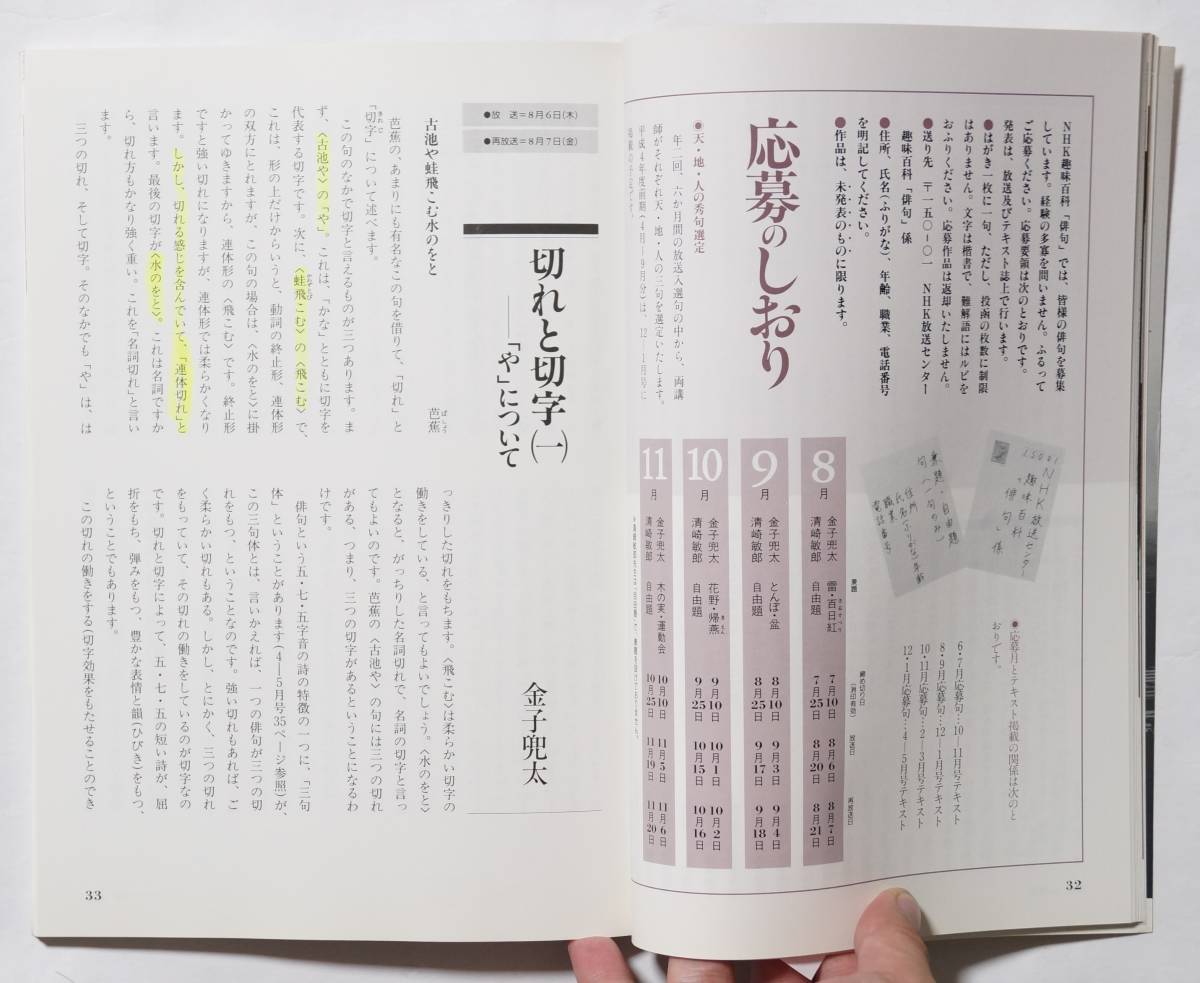 NHK趣味百科「俳句」では、皆様の俳句を募集
しています。経験の多寡を問いません。ふるって
ご応募ください。応募要領は次のとおりです。
発表は、放送及びテキスト誌上で行います。
●はがき一枚に一句、ただし、投函の枚数に制限
はありません。文字は楷書で、難解語にはルビを
おふりください。応募作品は返却いたしません。
●送り先 〒一五〇-〇一 NHK放送センター
趣味百科「俳句」係
●住所、氏名(ふりがな)、年齢、職業、電話番号
を明記してください。
●作品は、未発表のものに限ります。
応募のしおり
●天・地・人の秀句選定
年二回、六か月間の放送入選句の中から、両講
師がそれぞれ天・地・人の三句を選定いたします。
平成4年度前期(4月―9月分)は、12―1月号に
掲載の予定です。
15001
NHK放送センター
趣味百科
「俳句」係
兼題・自由題
句(一句のみ)
住所
氏名(ふりがな)年齢
職業
電話番号
●応募月とテキスト掲載の関係は次のと
おりです。
6・7月応募句…10―11月号テキスト
8・9月応募句…12―1月号テキスト
10・11月応募句…2―3月号テキスト
12・1月応募句…4―5月号テキスト
兼題
締め切り日
(消印有効)
放送日
再放送日
8月
金子兜太 雷・百日紅 7月10日 8月6日 8月7日
清崎敏郎 自由題 7月25日 8月20日 8月21日
9月
金子兜太 とんぼ・盆 8月10日 9月3日 9月4日
清崎敏郎 自由題 8月25日 9月17日 9月18日
10月
金子兜太 花野・帰燕 9月10日 10月1日 10月2日
清崎敏郎 自由題 9月25日 10月15日 10月16日
11月
金子兜太 木の実・運動会 10月10日 11月5日 11月6日
清崎敏郎 自由題 10月25日 11月19日 11月20日
32
●放 送=8月6日(木)
●再放送=8月7日(金)
切れと切字(一)
――「や」について
金子兜太
古池や蛙飛こむ水のをと
芭蕉
ばしょう
芭蕉の、あまりにも有名なこの句を借りて、「切れ」と
「切字」について述べます。
きれじ
この句のなかで切字と言えるものが三つあります。ま
ず、〈古池や〉の「や」。これは、「かな」とともに切字を
代表する切字です。次に、〈蛙飛こむ〉の〈飛こむ〉で、
これは、形の上だけからいうと、動詞の終止形、連体形
の双方にとれますが、この句の場合は、〈水のをと〉に掛
かってゆきますから、連体形の〈飛こむ〉です。終止形
ですと強い切れになりますが、連体形では柔らかくなり
ます。しかし、切れる感じを含んでいて、「連体切れ」と
言います。最後の切字が〈水のをと〉。これは名詞ですか
ら、切れ方もかなり強く重い。これを「名詞切れ」と言い
ます。
三つの切れ、そして切字。そのなかでも「や」は、は
っきりした切れをもちます。〈飛こむ〉は柔らかい切字の
働きをしている、と言ってもよいでしょう。〈水のをと〉
となると、がっちりした名詞切れで、名詞の切字と言っ
てもよいのです。芭蕉の〈古池や〉の句には三つの切れ
がある、つまり、三つの切字があるということになるわ
けです。
俳句という五・七・五字音の詩の特徴の一つに、「三句
体」ということがあります(4―5月号35ページ参照)が、
この三句体とは、言いかえれば、一つの俳句が三つの切
れをもつ、ということなのです。強い切れもあれば、ご
く柔らかい切れもある。しかし、とにかく、三つの切れ
をもっていて、その切れの働きをしているのが切字なの
です。切れと切字によって、五・七・五の短い詩が、屈
折をもち、弾みをもつ、豊かな表情と韻(ひびき)をもつ、
ということでもあります。
この切れの働きをする(切字効果をもたせることのでき
33